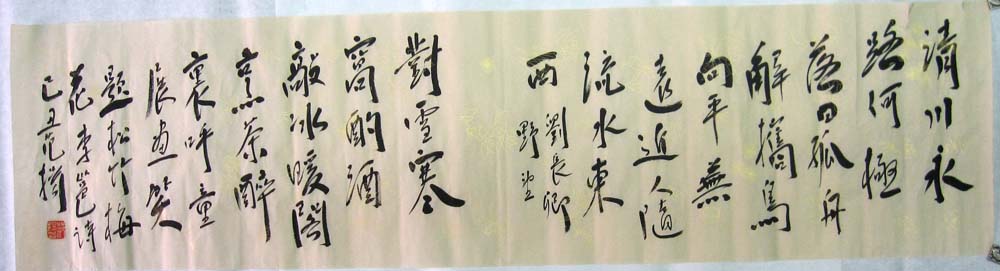 清川永
路何極
落日孤舟
解攜鳥
向平蕪
遠近人隨
流水東
西
劉長卿
野
對雪寒
窩酌酒
敲冰暖閣
烹茶醉
裏呼童
展畫笑
題松竹梅
花 李邕詩
己丑范